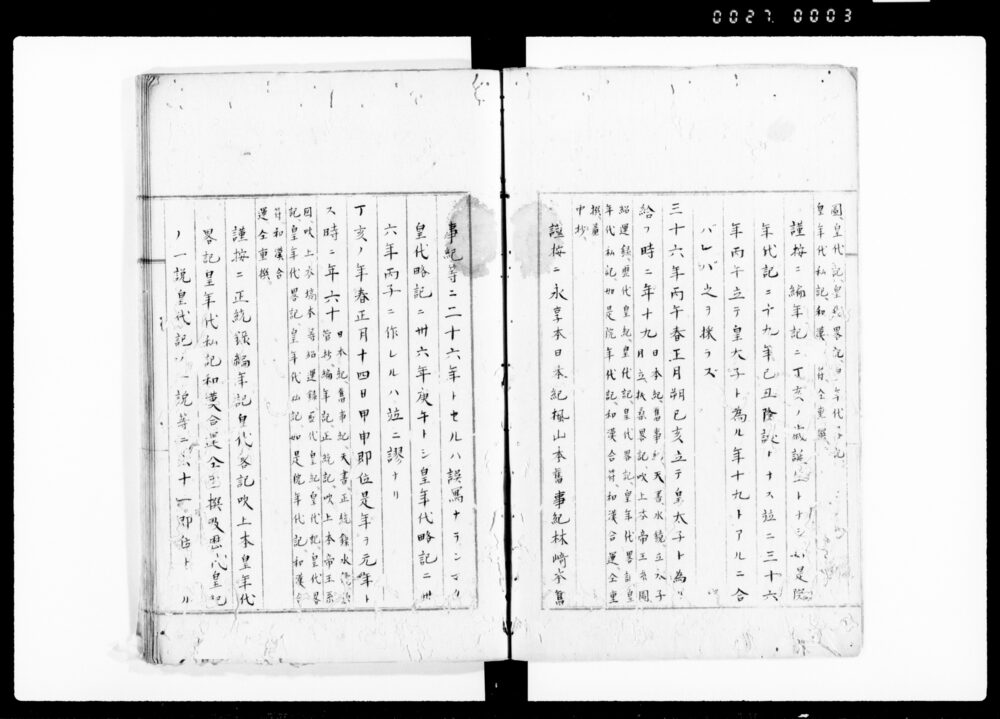 0027 0003
圖、皇代記、皇代畧記、皇年代畧記、
皇年代私記、和漢合符、全重撰、
謹按ニ編年記ニ丁亥ノ歳誕生トナシ如是院
年代記ニ 九年己丑降誕トナス竝ニ三十六
年丙午立テ皇太子ト為ル年十九トアルニ合
ハレバ之ヲ採ラズ
三十六年丙午春正月朔己亥立テ皇太子ト為リ
給フ時ニ年十九 日本紀、舊事紀、天書、水鏡、立太子
月立扶桑畧記、吹上本帝王系圖
紹運録、歴代皇紀、皇代記、皇代畧記、皇年代畧記、皇
年代私記、如是院年代記、和漢合符、和漢合運、全重
撰
中抄、
謹按ニ永享本日本紀楓山本舊事紀林崎本舊
事紀等ニ二十六年トセルハ誤写ナラン
皇代略記ニ卅六年庚午トシ皇年代略記ニ卅
六年丙子ニ作レルハ竝ニ謬ナリ
丁亥ノ年春正月十四日甲申即位是年ヲ元年ト
ス時ニ年六十 日本紀、舊事紀、天書、正統録、水鏡、
管抄、編年記、正統記、吹上本帝王系
圖、吹上本、塙本等紹運録、歴代皇紀、皇代記、皇代畧
記、皇年代畧記、皇年代私記、如是院年代記、和漢合
符、和漢合
運、全重撰、
謹按ニ正統録編年記皇代畧記吹上本皇年代
畧記皇年代私記和漢合運全重撰及歴代皇紀
ノ一説皇代記ノ一説等ニ六十一即位ト ル